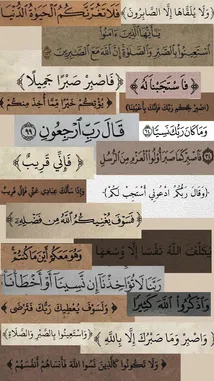 ﴿وَلَا يُلَقَّاهَا إِلَّا الصَّابِرُونَ﴾
فَلَا تَغُرَّنَّكُمُ الْحَيَوٰةُ الدُّنْيَا
يَٰٓأَيُّهَا الَّذِينَ ءَامَنُوا
اسْتَعِينُوا بِالصَّبْرِ وَالصَّلَوٰةِ إِنَّ اللَّهَ مَعَ الصَّٰبِرِينَ
﴿فَاسْتَجَبْنَا لَهُ﴾
﴿فَاصْبِرْ صَبْرًا جَمِيلًا﴾
﴿يُؤْتِكُمْ خَيْرًا مِّمَّا أُخِذَ مِنكُمْ﴾
﴿وَاصْبِرْ لِحُكْمِ رَبِّكَ فَإِنَّكَ بِأَعْيُنِنَا﴾
قَالَ رَبِّ ارْجِعُونِ ﴿٩٩﴾
وَمَا كَانَ رَبُّكَ نَسِيًّا
فَاصْبِرْ كَمَا صَبَرَ أُولُوا الْعَزْمِ مِنَ الرُّسُلِ
﴿فَإِنِّي قَرِيبٌ﴾
وَإِذَا سَأَلَكَ عِبَادِي عَنِّي فَإِنِّي قَرِيبٌ
﴿وَقَالَ رَبُّكُمُ ادْعُونِي أَسْتَجِبْ لَكُمْ﴾
﴿فَسَوْفَ يُغْنِيكُمُ اللَّهُ مِن فَضْلِهِ﴾
وَهُوَ مَعَكُمْ أَيْنَ مَا كُنتُمْ
يُكَلِّفُ اللَّهُ نَفْسًا إِلَّا وُسْعَهَا
رَبَّنَا لَا تُؤَاخِذْنَا إِن نَّسِينَا أَوْ أَخْطَأْنَا
﴿وَلَسَوْفَ يُعْطِيكَ رَبُّكَ فَتَرْضَىٰ﴾
وَاذْكُرُوا اللَّهَ كَثِيرًا
﴿وَاصْبِرْ وَمَا صَبْرُكَ إِلَّا بِاللَّهِ﴾
﴿وَاسْتَعِينُوا بِالصَّبْرِ وَالصَّلَاةِ﴾
﴿وَلَا تَكُونُوا كَالَّذِينَ نَسُوا اللَّهَ فَأَنسَاهُمْ أَنفُسَهُمْ﴾